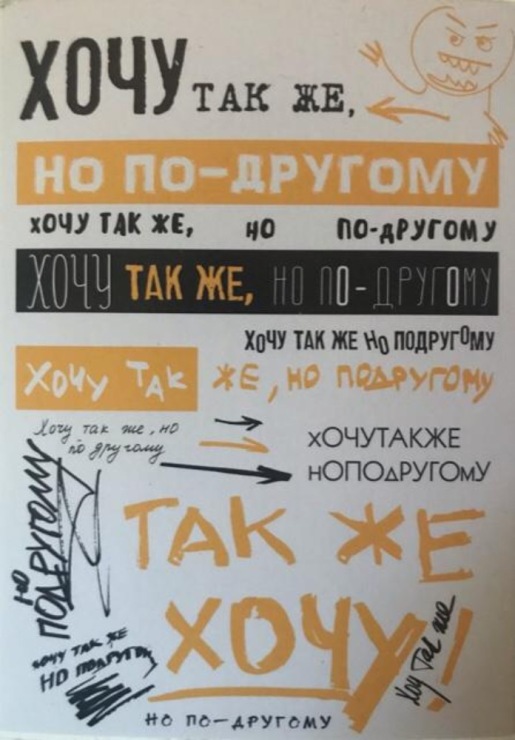 ХОЧУ ТАК ЖЕ,
НО ПО-ДРУГОМУ
ХОЧУ ТАК ЖЕ, НО ПО-ДРУГОМУ
ХОЧУ ТАК ЖЕ, НО ПО-ДРУГОМУ
ХОЧУ ТАК ЖЕ НО ПОДРУГОМУ
ХОЧУ ТАК ЖЕ, НО ПОДРУГОМУ
Хочу так же, но
по другому
хОЧУТАКЖЕ
нОПОдРУГОмУ
НО
ПОДРУГОМУ
ТАК ЖЕ
ХОЧУ!
ХОЧУ ТАК ЖЕ
НО
Хочу Так же
НО ПО-ДРУГОМУ